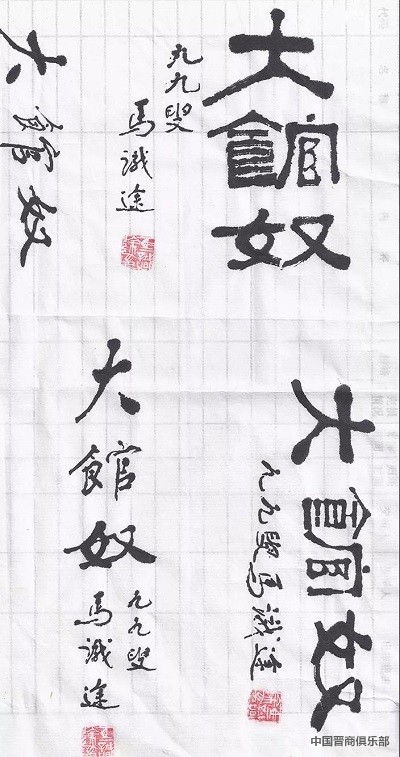 大館奴
九九叟
馬識途
大館奴
大館奴
九九叟馬識途
大館奴
九九叟
馬識途
中国晋商俱乐部